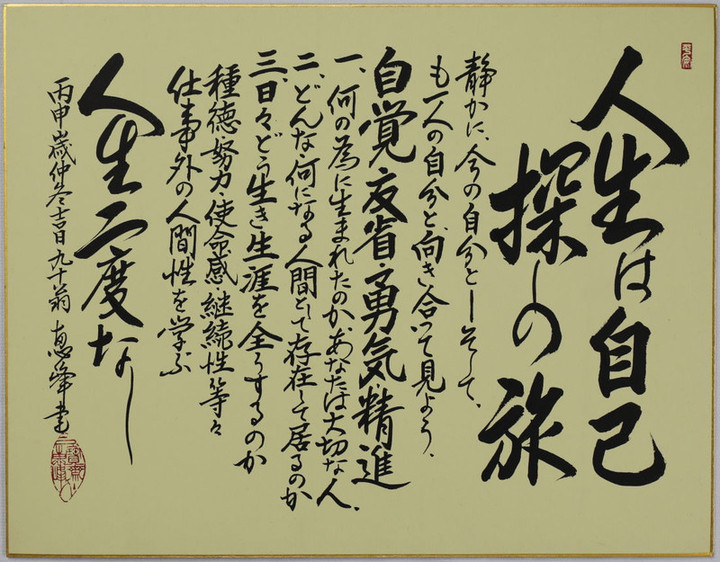 人生は自己
探しの旅
静かに、今の自分とーそして、
も一人の自分と、向き合って見よう、
自覚・反省・勇気・精進
一、何の為に生まれたのか、あなたは大切な人、
二、どんな、何になる人間として存在して居るのか
三、日々どう生き生涯を全うするのか
種徳・努力・使命感・継続性・等々
仕事外の人間性を学ぶ
人生二度なし
丙申歳仲冬吉日九十翁 恵峰書